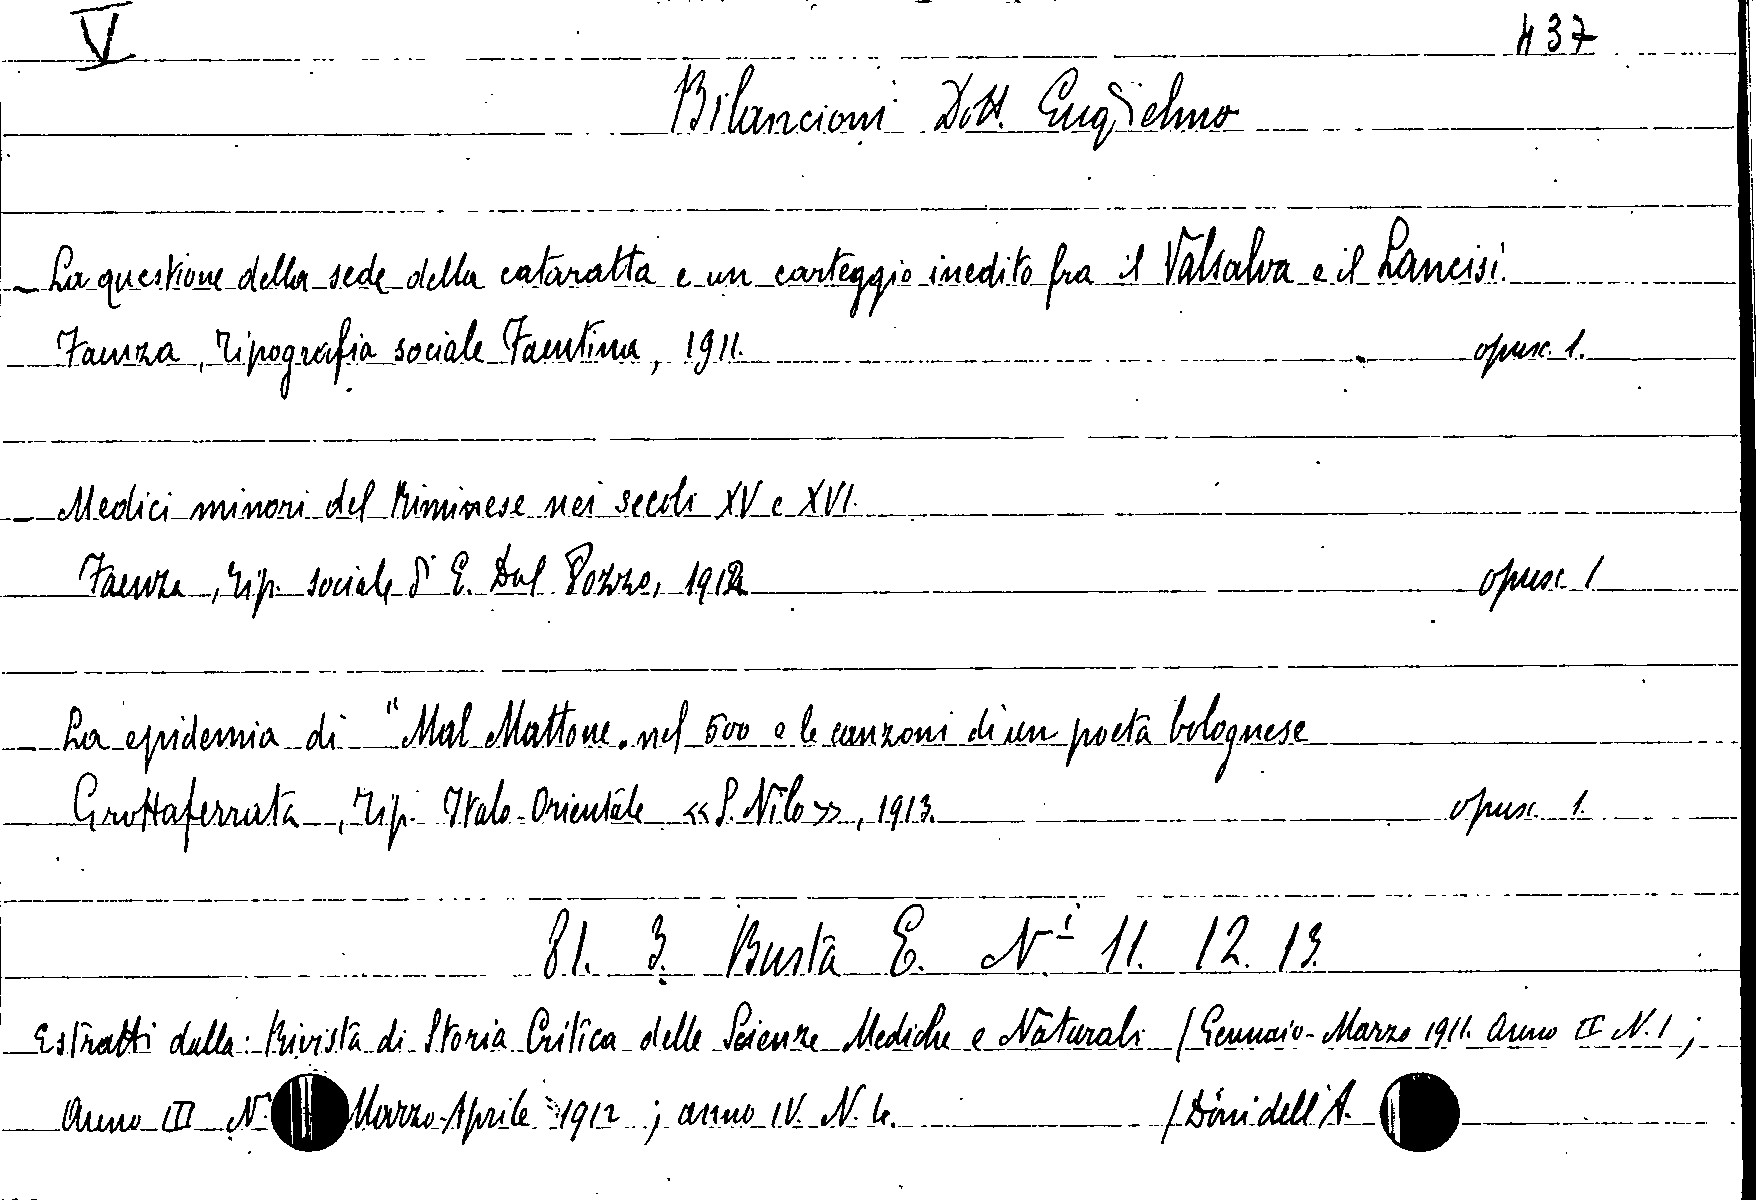 V 437
Bilancioni Dott. Guglielmo
- La questione della sede della cataratta e un carteggio inedito fra il Valsalva e il Lancisi.
Faenza, Tipografia sociale Faentina, 1911. opusc. 1.
- Medici minori del Riminese nei secoli XV e XVI.
Faenza, Tip. sociale di E. Dal Pozzo, 1912 opusc. 1
- La epidemia di "Mal Mattone" nel 500 e le canzoni di un poeta bolognese
Grottaferrata, Tip. Italo-Orientale «S. Nilo», 1913. opusc. 1.
81. 3. Busta E. Ni 11. 12. 13.
Estratti dalla: Rivista di Storia Critica delle Scienze Mediche e Naturali (Gennaio-Marzo 1911. Anno II N. 1;
Anno III N. Marzo-Aprile 1912; anno IV. N. 4. (Doni dell'A.